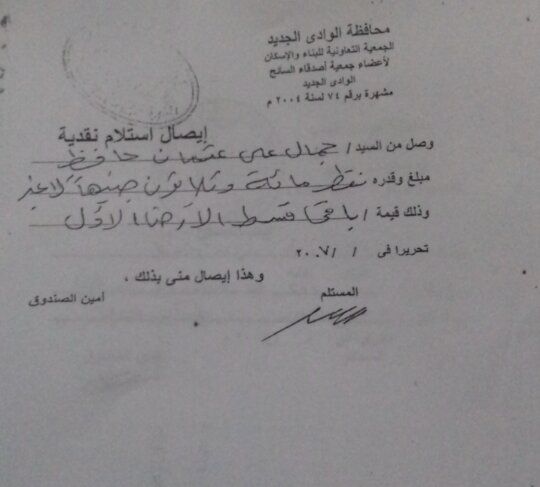 محافظة الوادى الجديد
الجمعية التعاونية للبناء والإسكان
لأعضاء جمعية أصدقاء السائح
الوادى الجديد
مشهرة برقم ٧٤ لسنة ٢٠٠٤ م
إيصال استلام نقدية
وصل من السيد / جمال على عثمان حافظ
مبلغ وقدره فقط مائة وثلاثون جنيهاً لاغير
وذلك قيمة / باقى قسط الأرض الأول
تحريرا فى / / ٢٠٠٧
وهذا إيصال منى بذلك ،
المستلم
أمين الصندوق